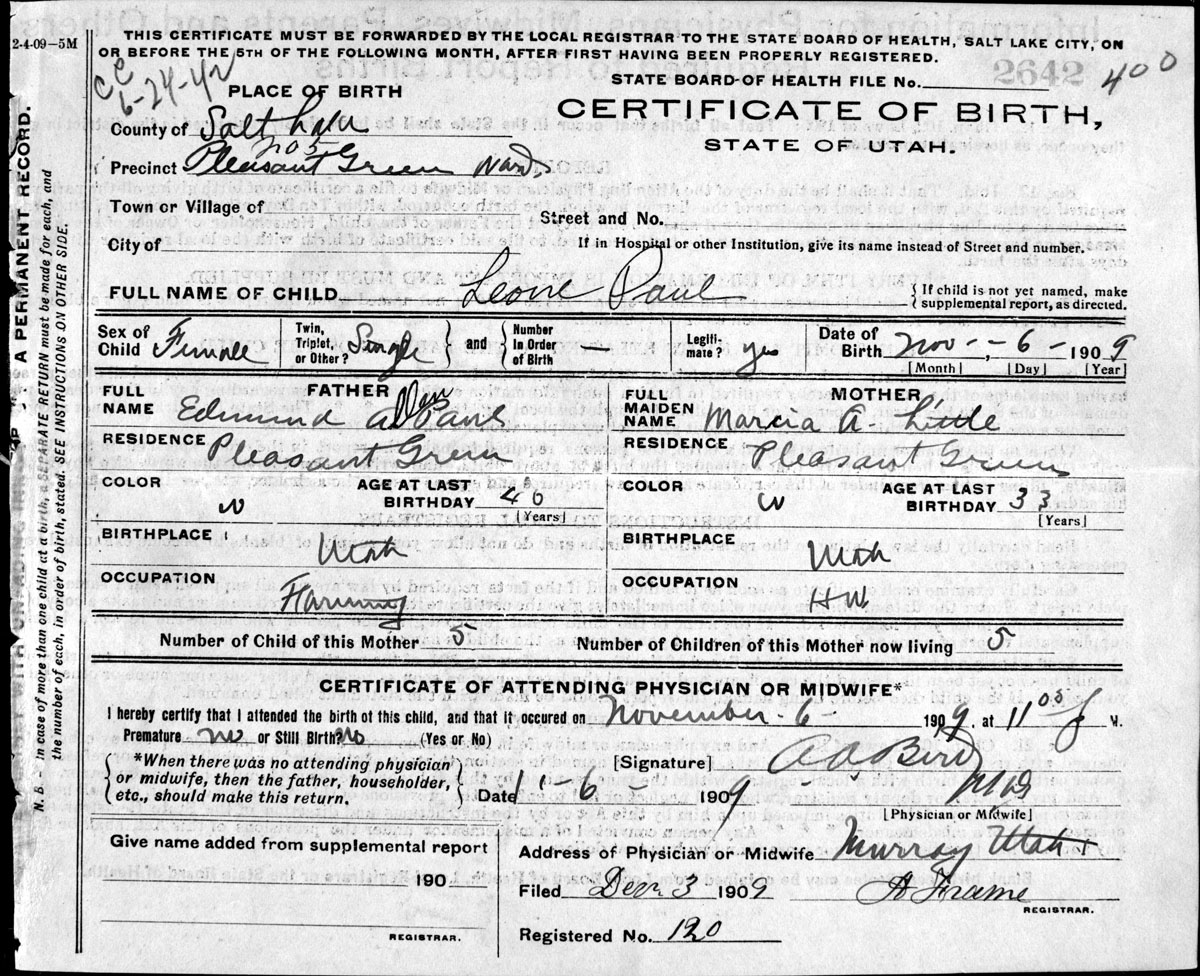 2-4-09-5M
THIS CERTIFICATE MUST BE FORWARDED BY THE LOCAL REGISTRAR TO THE STATE BOARD OF HEALTH, SALT LAKE CITY, ON
OR BEFORE THE 5TH OF THE FOLLOWING MONTH, AFTER FIRST HAVING BEEN PROPERLY REGISTERED.
STATE BOARD OF HEALTH FILE No. 400
2642
6-24-42
PLACE OF BIRTH
CERTIFICATE OF BIRTH,
STATE OF UTAH.
County of Salt Lake
Precinct Pleasant Green Ward
Town or Village of
Street and No.
City of
If in Hospital or other Institution, give its name instead of Street and number.
FULL NAME OF CHILD Leone Paul
{If child is not yet named, make supplemental report, as directed.
Sex of Child Female
Twin, Triplet, or Other? Single } and { Number In Order of Birth —
Legiti-mate? yes
Date of Birth Nov - 6 - 1909
[Month] [Day] [Year]
FATHER
FULL NAME Edmund Paul
RESIDENCE Pleasant Green
COLOR W
AGE AT LAST BIRTHDAY 46
[Years]
BIRTHPLACE Utah
OCCUPATION Farming
MOTHER
FULL MAIDEN NAME Marcia A. Little
RESIDENCE Pleasant Green
COLOR W
AGE AT LAST BIRTHDAY 33
[Years]
BIRTHPLACE Utah
OCCUPATION H.W.
Number of Child of this Mother 5
Number of Children of this Mother now living 5
CERTIFICATE OF ATTENDING PHYSICIAN OR MIDWIFE*
I hereby certify that I attended the birth of this child, and that it occured on November 6 - 1909, at 11 M.
Premature no or Still Birth? no (Yes or No)
{*When there was no attending physician
or midwife, then the father, householder,
etc., should make this return.}
[Signature] A A Bird MD
Date 11-6-1909
[Physician or Midwife]
Give name added from supplemental report
190
REGISTRAR.
Address of Physician or Midwife Murray Utah
Filed Dec 3 1909 A Frame
REGISTRAR.
Registered No. 120
A PERMANENT RECORD.
N. B.- In case of more than one child at a birth, a SEPARATE RETURN must be made for each, and
the number of each, in order of birth, stated. SEE INSTRUCTIONS ON OTHER SIDE.